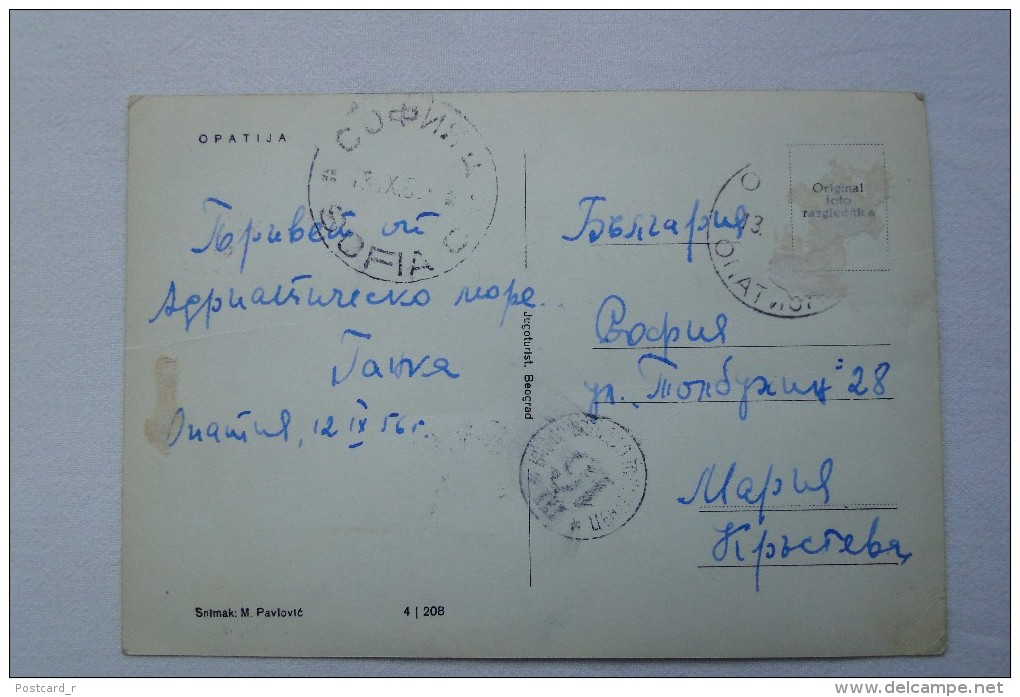 OPATIJA
СОФИЯ
SOFIA
Поривет от
Адриатическо море.
Ганка
Опатия, 12 IX 56 г.
Snimak: M. Pavlović
4 | 208
Jugoturist. Beograd
Original
foto
razglednica
13.
България
София
ул. „Толбухин" 28
Мария
Кръстева
Postcard_r
www.delcampe.net